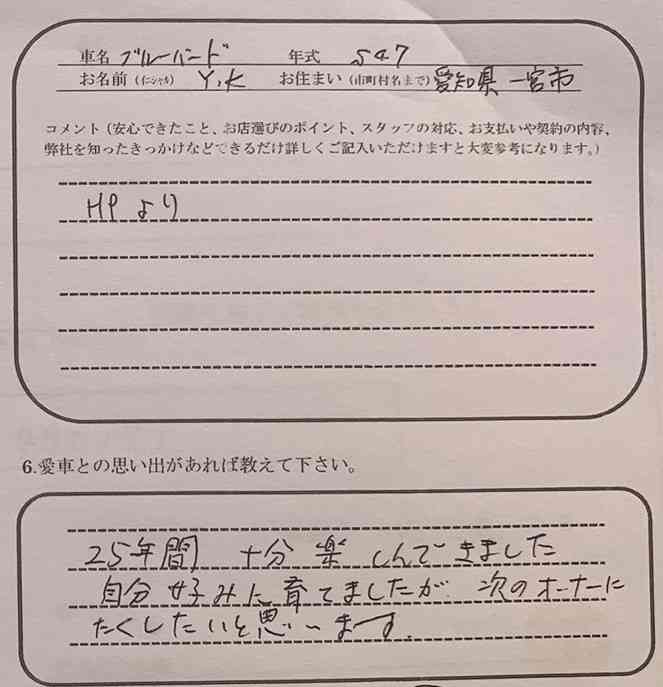 車名 ブルーバード 年式 S47
お名前（イニシャル） Y.K お住まい（市町村名まで）愛知県 一宮市
コメント（安心できたこと、お店選びのポイント、スタッフの対応、お支払いや契約の内容、
弊社を知ったきっかけなどできるだけ詳しくご記入いただけますと大変参考になります。）
HPより
6.愛車との思い出があれば教えて下さい。
25年間 十分楽しんできました
自分好みに育てましたが 次のオーナーに
たくしたいと思います.